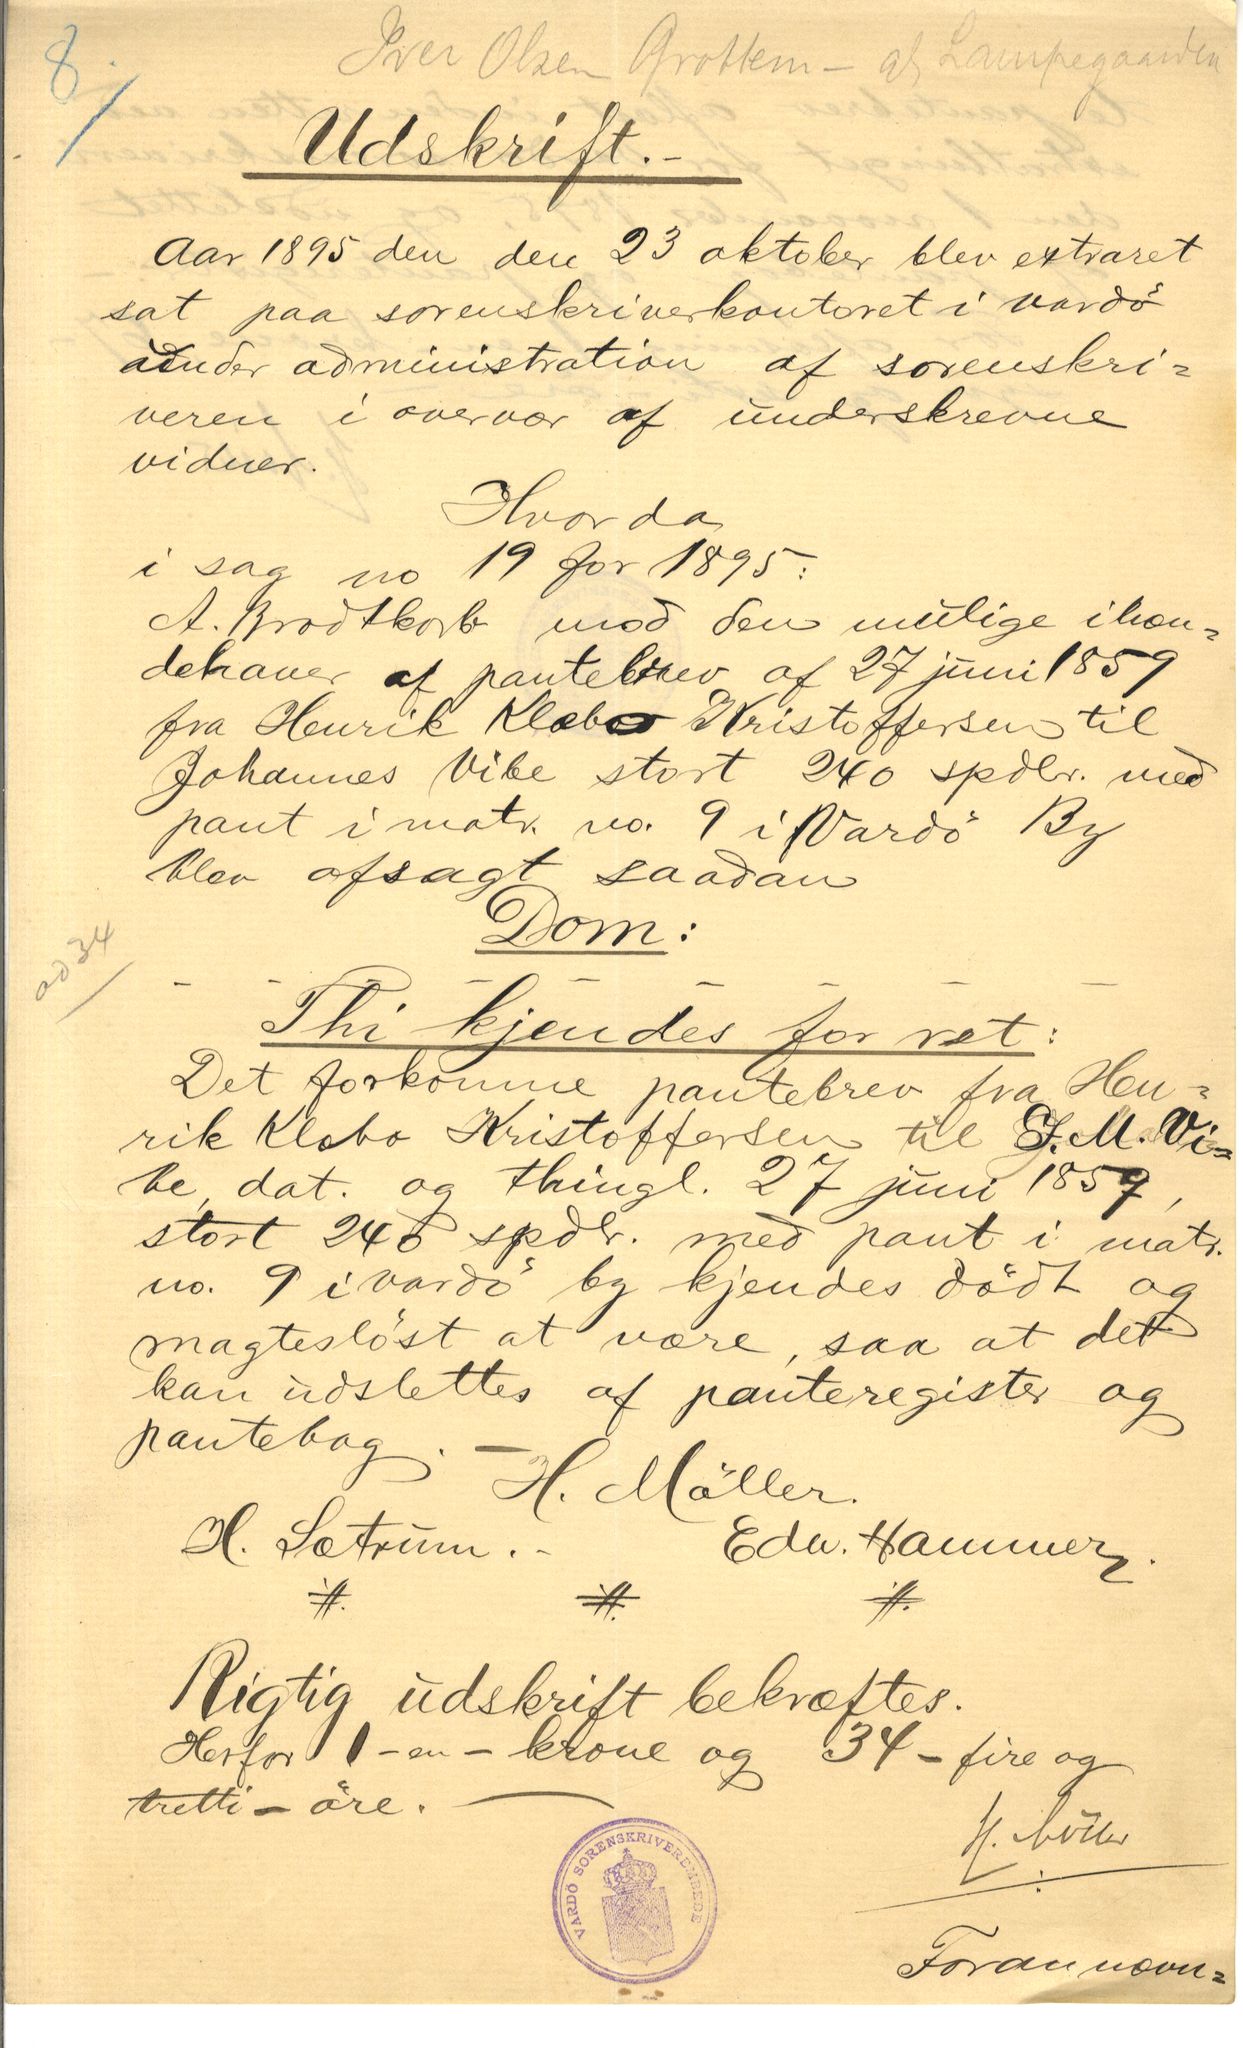 8.
Iver Olsen Grottem – af Lampegaarden
Udskrift.-
Aar 1895 den den 23 oktober blev extraret
sat paa sorenskriverkontoret i Vardö
under administration af sorenskri=
veren i overvær af underskrevne
vidner.
Hvorda
i sag no 19 for 1895:
A. Brodtkorb mod den mulige ihæn=
dehaver af pantebrev af 27 juni 1859
fra Henrik Klæbo Kristoffersen til
Johannes Vibe stort 240 spdlr. med
pant i matr. no. 9 i Vardö By
blev afsagt saadan
Dom:
- - - - - - - -
Thi kjendes for ret:
Det forkomne pantebrev fra Hen=
rik Klæbo Kristoffersen til J. M. Vi=
be, dat. og thingl. 27 juni 1859,
stort 240 spdlr. med pant i matr.
no. 9 i Vardö by kjendes dödt og
magteslöst at være, saa at det
kan udslettes af panteregister og
pantebog. —
H. Möller.
H. Sætrum.- Edv. Hammer.
#. #. #.
Rigtig udskrift bekræftes.
Herfor 1 – en – krone og 34 – fire og
tretti – öre. —
H. Möller
VARDÖ SORENSKRIVEREMBEDE
Forannævn=
ad 34